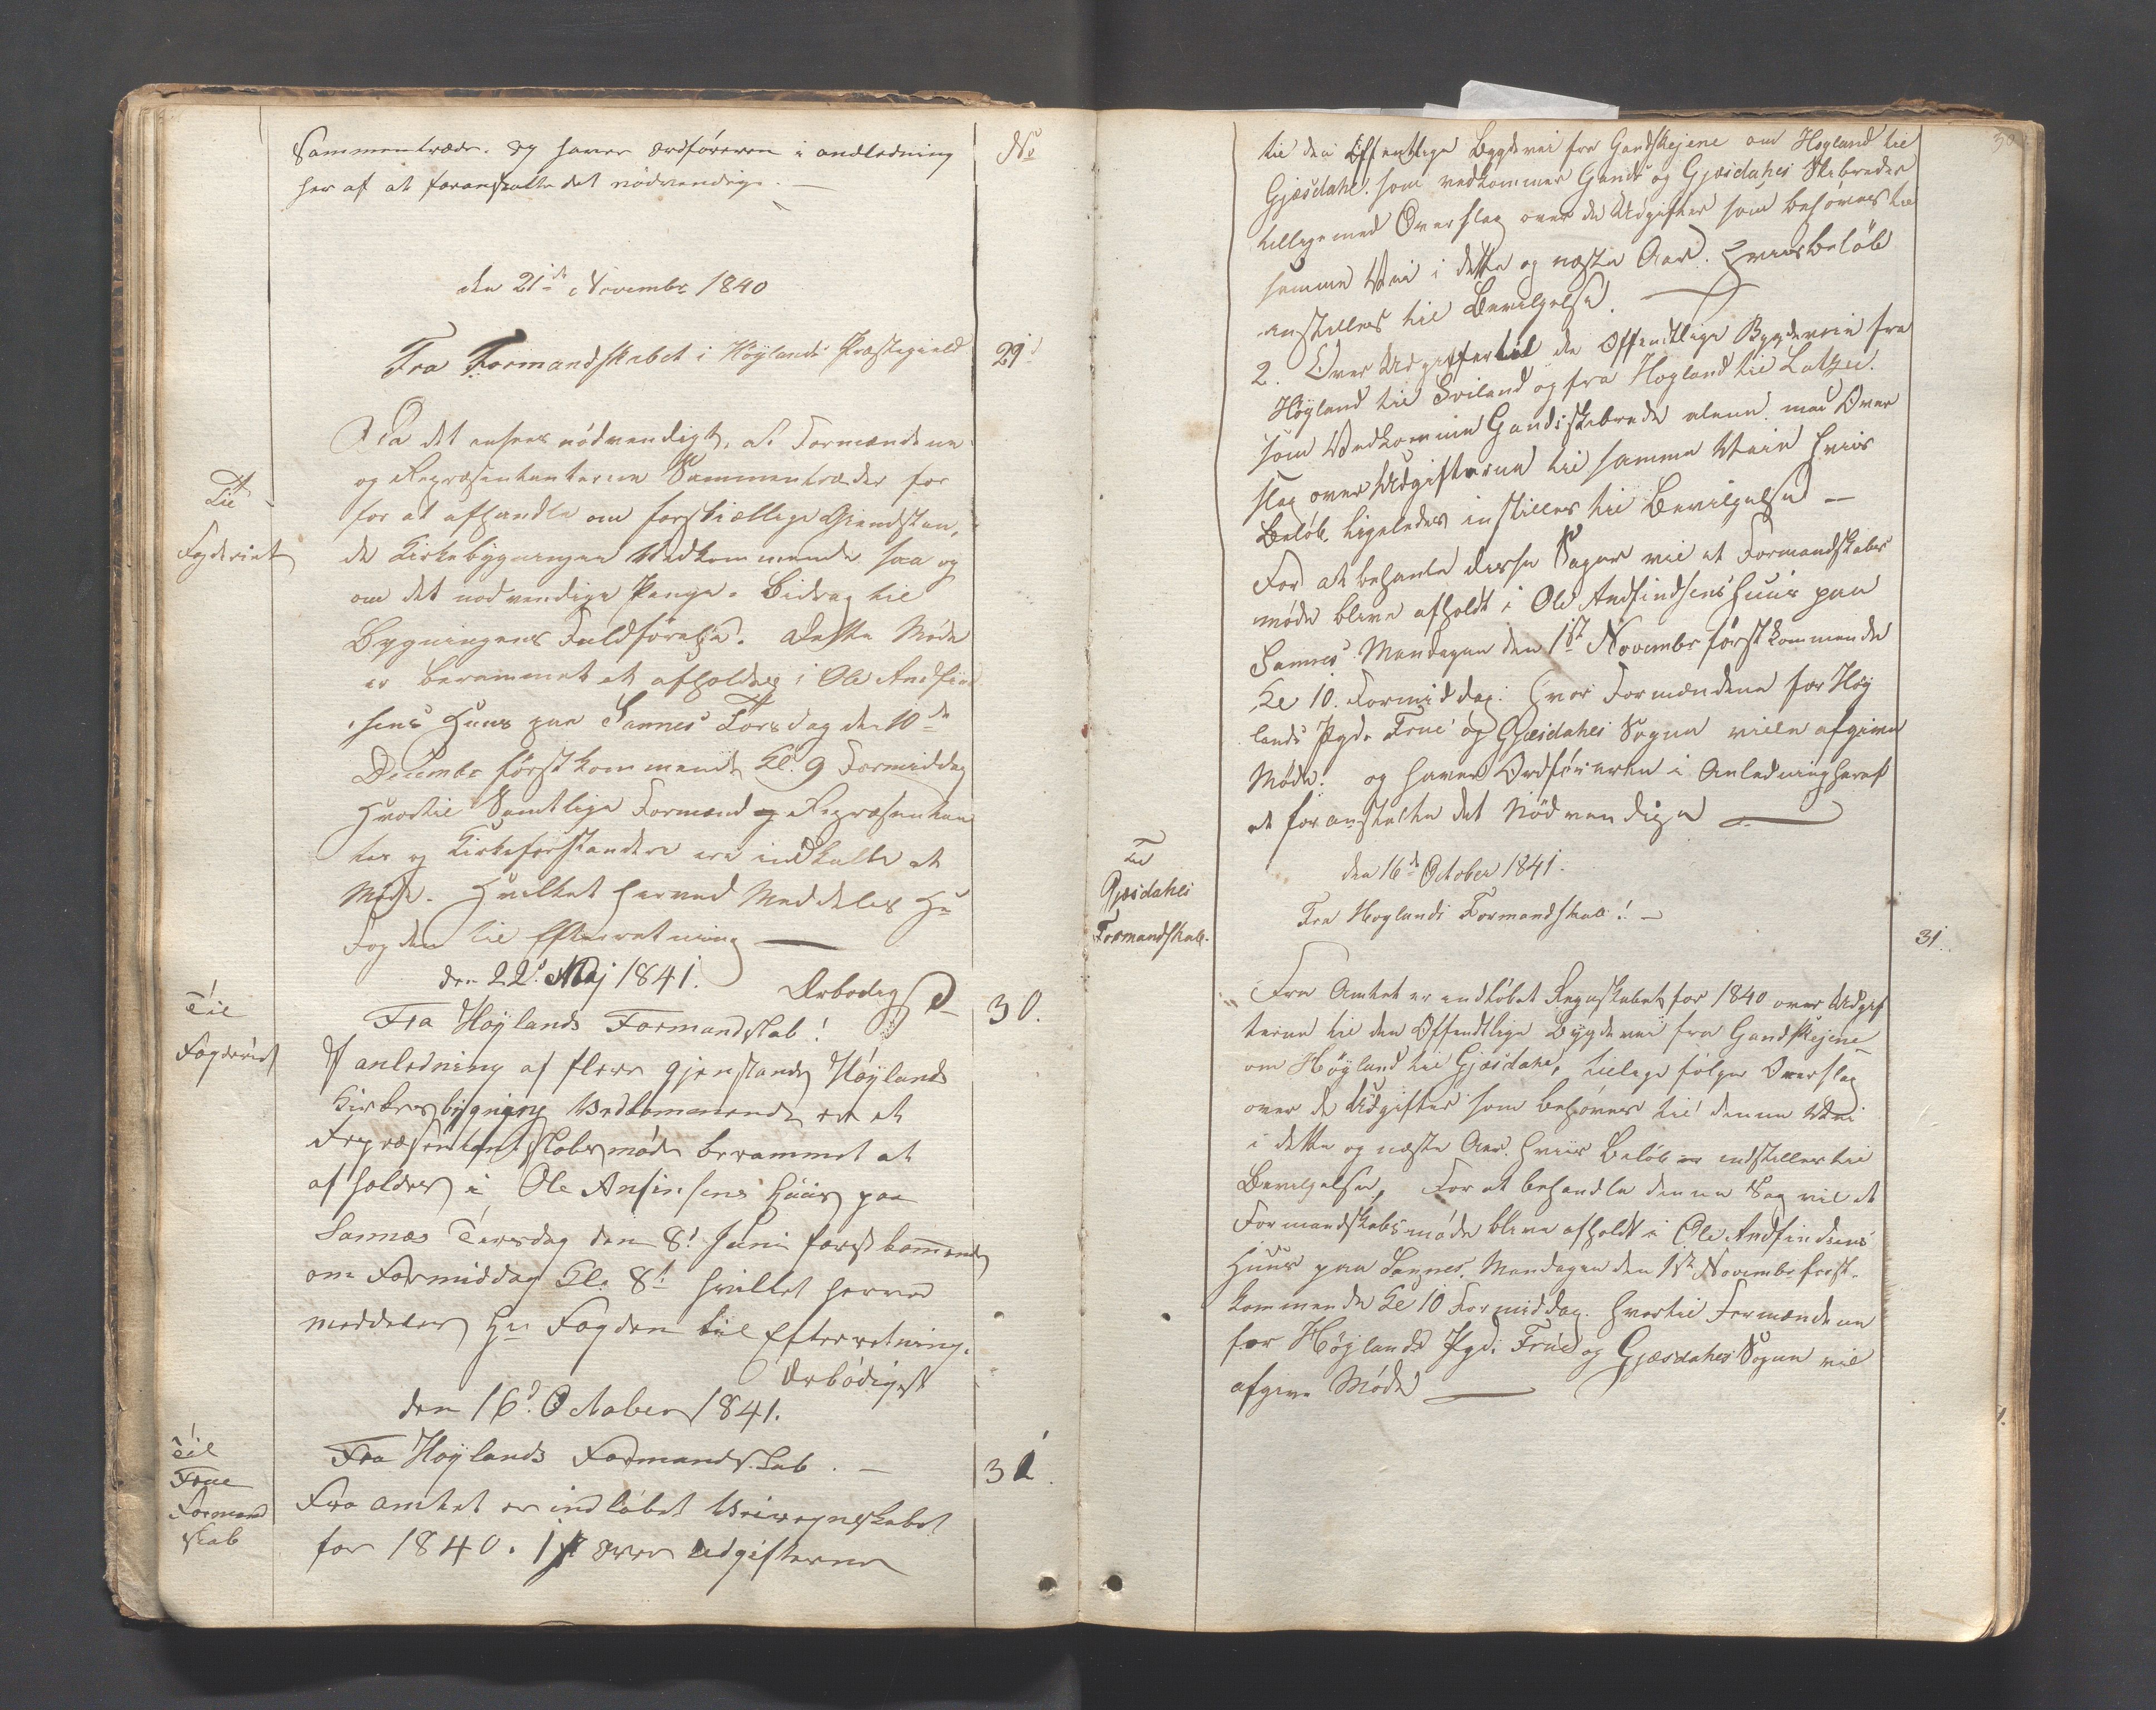 Sammentræde. og haver ordføreren i andledning
her af at foranstalte det nödvendige. —
No
den 21de Novembr 1840
Fra Formandskabet i Höÿlands Præstegield
29
Til
Fogderiet
Da det ansees nödvendigt, at Formændene
og Repræsentanterne Sammentræder for
for at afhandle om forskiællige Gienstan,
de Kirkebÿgningen Vedkommende, saa og
om det nödvendige Penge-Bidrag til
Bygningens Fuldförelse. Dette Möde
er berammet at afholdes i Ole Andfind
sens Huus paa Sannes Torsdag den 10de
Decembr förstkommende Kl. 9 Formiddag
Hvortil Samtlige Formænd og Repræsentan
ter og Kirkeforstandere ere indkalte at
Møde. Hvilket herved Meddeles Hr
Fogden til Efterretning —
Ærbödigst
den 22d Maj 1841.
Til
Fogderiet
Fra Höÿlands Formandskab!
30.
I anledning af flere gjenstande Höÿlands
Kirkesbÿgning Vedkommende er et
Repræsentantskabsmøde berammet at
afholdes i Ole Anfinsens Huus paa
Sannes Tirsdag den 8d Juni førstkommende
om Formiddag Kl. 8t hvilket herved
meddeles Hr Fogden til Efterretning.
Ærbödigst
den 16d October 1841.
Til
Frue
Formand
skab
Fra Höÿlands Formandskab. —
31.
Fra amtet er indlöbet Veiregnskabet
for 1840. 1st over udgifterne
30
til den Offentlige Bygdevei fra Gandskejene om Høyland til
Gjæsdahl. som vedkommer Gands og Gjæsdahls Skibreder
tilligemed Overslag over de Udgifter som behöves til
samme Vei i dette og næste Aar. hvis beløb
anstilles til Bevilgelse.
2. Over Udgifter til de Offentlige Bygdeveie fra
Höyland til Sviland og fra Høyland til
som Vedkomme Gands skibrede alene med Over
slag over Udgifterne til samme Veie hvis
Beløb ligeledes instilles til Bevilgelse —
For at behanle disse Sager vil et Formandskabs
møde blive afholdt i Ole Andfindsens Huus paa
Sannes Mandagen den 1ste Novembr förstkommende
Kl 10. Formiddag. hvor Formændene for Høy
lands Pgd. Frue og Gjæsdahls Sogne ville afgive
Møde. og haver Ordföreren i Anledning heraf
at foranstalte det Nödvendige —
den 16de October 1841.
Til
Gjæsdahls
Formandskab.
Fra Høylands Formandskab! —
31.
Fra Amtet er indlöbet Regnskabet for 1840 over Udgif
terne til den Offendtlige Bygdevei fra Gandskejene
om Höyland til Gjæsdahl, tillige følger Overslag
over de Udgifter som behöves til denne Vei
i dette og næste Aar. hviis Beløb er indstilles til
Bevilgelse, For at behandle denne Sag vil et
Formandskabsmøde blive afholdt i Ole Andfindsens
Huus paa Sannes, Mandagen den 1ste Novembr først-
kommende Kl 10 Formiddag. hvortil Formændene
for Höjlands Pgd. Frue og Gjæsdahls Sogne vil
afgive Møde —